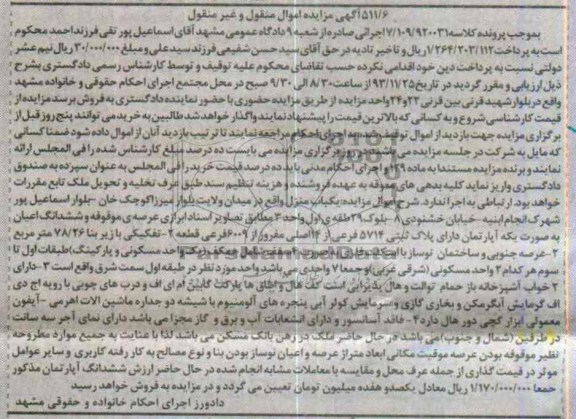 ۵۱۱/۶ آگهی مزایده اموال منقول و غیر منقول
بموجب پرونده کلاسه ۷/۱۰۹/۹۲۰۰۳۱ اجرائی صادره از شعبه ۹ دادگاه عمومی مشهد آقای اسماعیل پور تقی فرزند احمد محکوم
است به پرداخت ۱/۲۶۴/۲۰۳/۱۱۲ ریال و تاخیر تادیه در حق آقای سید حسن شفیعی فرزند سید علی و مبلغ ۳۰/۰۰۰/۰۰۰ ریال نیم عشر
دولتی نسبت به پرداخت دین خود اقدامی نکرده حسب تقاضای محکوم علیه توقیف و توسط کارشناس رسمی دادگستری بشرح
ذیل ارزیابی و مقرر گردید در تاریخ ۹۳/۱۱/۲۵ از ساعت ۸/۳۰ الی ۹/۳۰ صبح در محل مجتمع اجرای احکام حقوقی و خانواده مشهد
واقع در بلوار شهید قرنی بین قرنی ۲۲ و ۲۴ واحد مزایده از طریق مزایده حضوری با حضور نماینده دادگستری به فروش برسد مزایده از
قیمت کارشناسی شروع و به کسانی که بالاترین قیمت را پیشنهاد نمایند واگذار خواهد شد طالبین به خرید می توانند پنج روز قبل از
برگزاری مزایده جهت بازدید از اموال توقیف شده به اجرای احکام مراجعه نمایند تا ترتیب بازدید آنان از اموال داده شود ضمنا کسانی
که مایل به شرکت در جلسه مزایده می باشند در روز برگزاری مزایده می بایست ده درصد مبلغ کارشناس شده را فی المجلس ارائه
نمایند و برنده مزایده مستندا به ماده اجرای احکام مدنی باید ده درصد قیمت خرید را فی المجلس به عنوان سپرده به صندوق
دادگستری واریز نماید کلیه بدهی های معوقه به عهده فروشنده و هزینه تنظیم سند طبق عرف تخلیه و تحویل ملک تابع مقررات
خواهد بود. ارتباطی به اجرا ندارد. شرح اموال مزایده: یکباب منزل واقع در میدان ولایت بلوار میرزا کوچک خان - بلوار اسماعیل پور
شهرک انجام ابنیه - خیابان خشنودی ۸ - بلوک ۲۹ طبقه ی اول واحد ۳ مطابق تصاویر اسناد ابرازی عرصه ی موقوفه و ششدانگ اعیان
به صورت یکه آپارتمان دارای پلاک ثبتی ۵۷۱۴ فرعی از ۱۴ اصلی مفروز از ۶۰۰۹ فرعی قطعه ۲ - تفکیکی با زیر بنا ۷۸/۲۶ متر مربع
۲- عرصه جنوبی و ساختمان نوساز با واحد مسکونی و پارکینگ) طبقات اول تا
سوم هر کدام ۲ واحد مسکونی (شرقی غربی) و جمعا ۷ واحدی می باشد واحد مورد نظر در طبقه اول سمت شرق واقع است ۳- دارای
۲ خواب آشپزخانه باز حمام توالت و هال پذیرایی است کف هال و اطاق ها پارکت کابینت ام دی اف و درب های چوبی با رویه اچ دی
اف گرمایش آبگرمکن و بخاری گازی و سرمایش کولر آبی پنجره های آلومنیوم با شیشه دو جداره ماشین الات اهرمی - آیفون
معمولی ابزار گچی دور هال دارد ۴- فاقد آسانسور و دارای انشعابات آب و برق و گاز مجزا می باشد دارای نمای آجر سه سانت
در طرفین (شمال و جنوب) می باشد در حال حاضر ملک در رهن بانک مسکن می باشد لذا با عنایت به جمیع موارد مطروحه
نظیر موقوفه بودن عرصه موقیت مکانی ابعاد متراژ عرصه و اعیان نوساز بودن بنا و نوع مصالح به کار رفته کاربری و سایر عوامل
موثر در قیمت گذاری از جمله عرف محل و مقایسه با معاملات مشابه انجام شده در حال حاضر ارزش ششدانگ آپارتمان مذکور
جمعا ۱/۱۷۰/۰۰۰/۰۰۰ ریال معادل یکصدو هفده میلیون تومان تعیین می گردد و در مزایده به فروش خواهد رسید
دادورز اجرای احکام خانواده و حقوقی مشهد